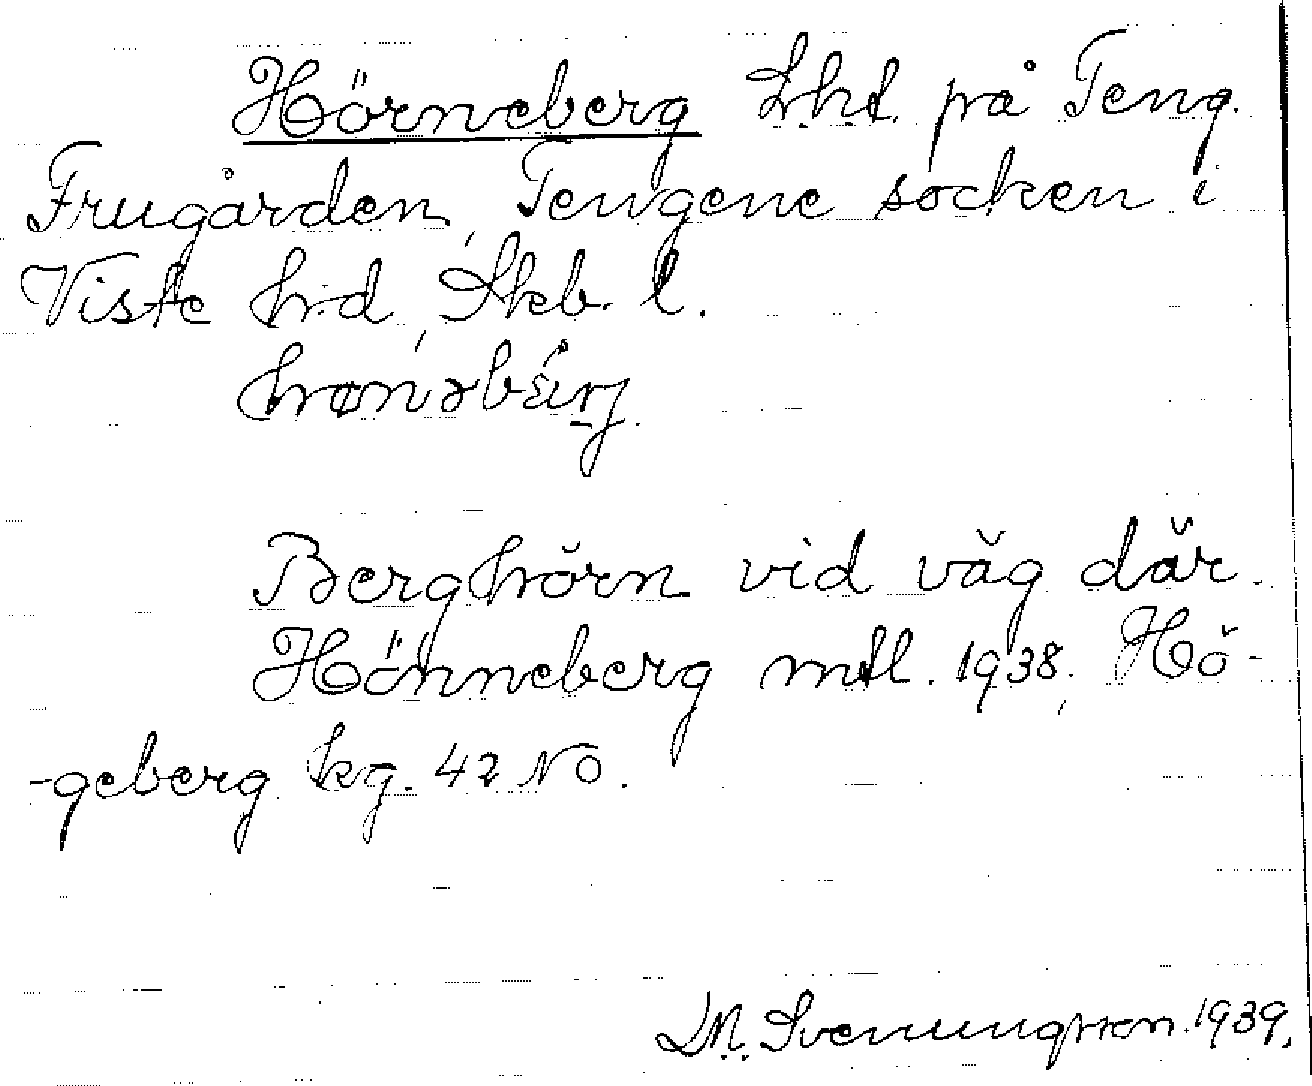 Hörneberg Lhl. på Teng.
Frugården, Tengene socken i
Viste hrd, Skb. l.
Berghörn vid väg där.
Hönneberg mtl. 1938. Hö-
-geberg kg. 42 NO.
M. Svenungsson 1939.